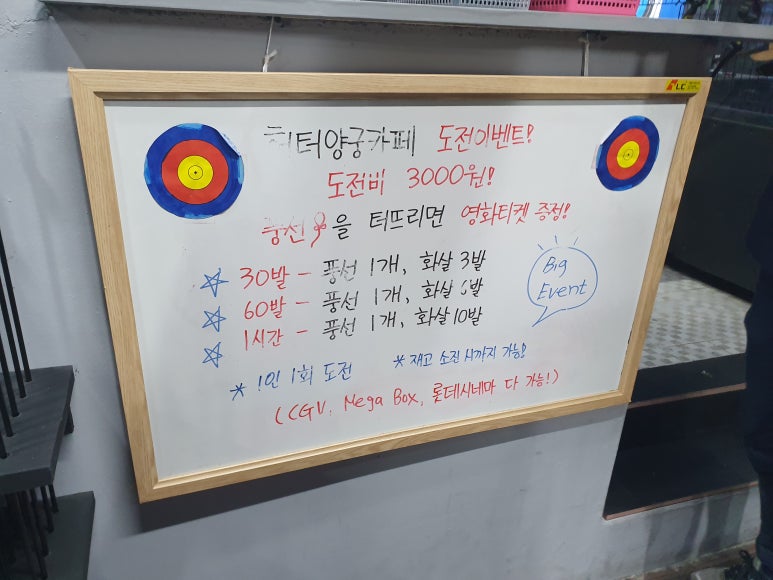 헌터양궁카페 도전이벤트!
도전비 3000원!
풍선을 터뜨리면 영화티켓 증정!
☆ 30발 - 풍선 1개, 화살 3발
☆ 60발 - 풍선 1개, 화살 6발
☆ 1시간 - 풍선 1개, 화살 10발
Big
Event
* 1인 1회 도전 * 재고 소진 시까지 가능!
(CGV, Mega Box, 롯데시네마 다 가능!)
LC